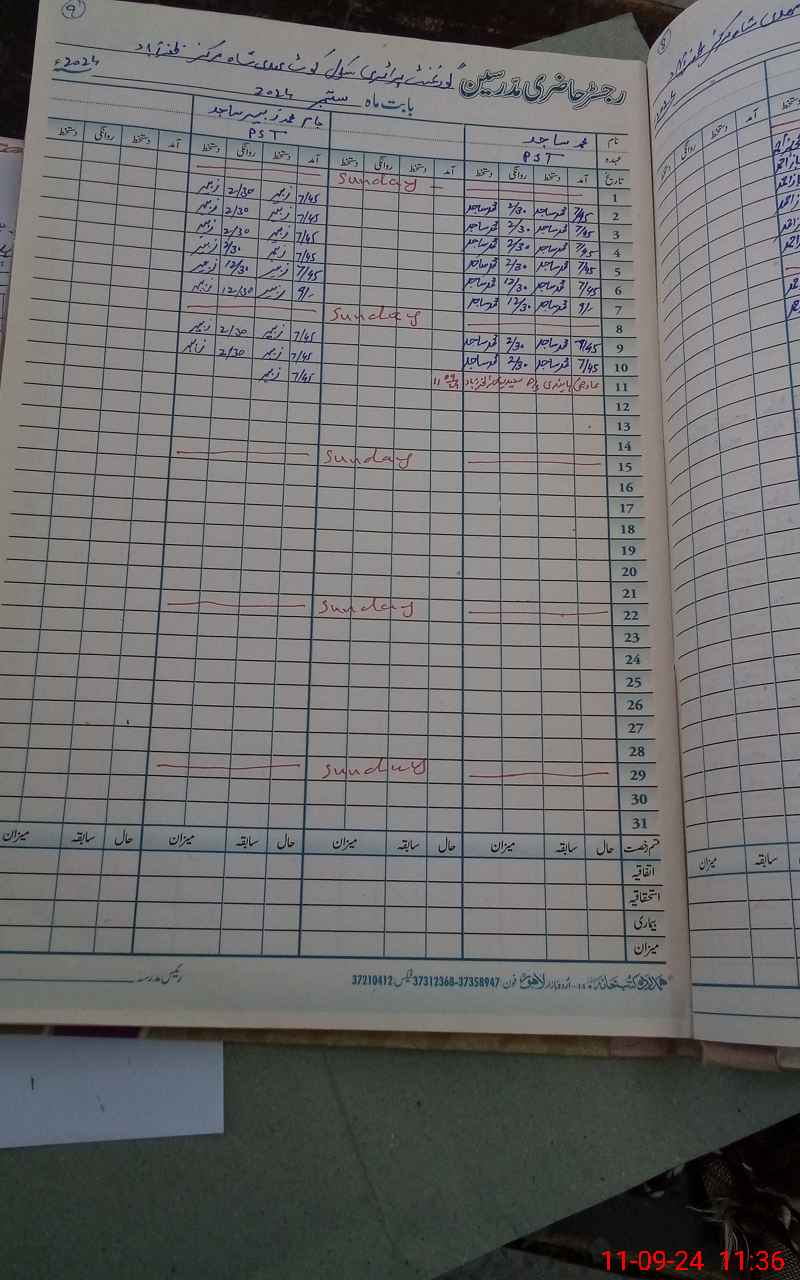 ۹
رجسٹر حاضری مدرسین گورنمنٹ پرائمری سکول کوٹ مہدی شاہ مرکز ظفر آباد
بابت ماہ ستمبر 2024 2024ء
نام محمد ساجد جام محمد زبیر ساجد
عہدہ PST PST
تاریخ آمد دستخط روانگی دستخط آمد دستخط روانگی دستخط آمد دستخط روانگی دستخط آمد دستخط روانگی دستخط
1 Sunday
2 7/45 محمد ساجد 2/30 محمد ساجد 7/45 زبیر 2/30 زبیر
3 7/45 محمد ساجد 2/30 محمد ساجد 7/45 زبیر 2/30 زبیر
4 7/45 محمد ساجد 2/30 محمد ساجد 7/45 زبیر 2/30 زبیر
5 7/45 محمد ساجد 2/30 محمد ساجد 7/45 زبیر 2/30 زبیر
6 7/45 محمد ساجد 12/30 محمد ساجد 7/45 زبیر 12/30 زبیر
7 9/- محمد ساجد 12/30 محمد ساجد 9/- زبیر 12/30 زبیر
8 Sunday
9 7/45 محمد ساجد 2/30 محمد ساجد 7/45 زبیر 2/30 زبیر
10 7/45 محمد ساجد 2/30 محمد ساجد 7/45 زبیر 2/30 زبیر
11 عارضی 7/45 زبیر
12
13
14
15 Sunday
16
17
18
19
20
21
22 Sunday
23
24
25
26
27
28
29 Sunday
30
31
قسم رخصت حال سابقہ میزان حال سابقہ میزان حال سابقہ میزان حال سابقہ میزان
اتفاقیہ
استحقاقیہ
بیماری
میزان
ہمدرد کتب خانہ اردو بازار لاہور فون: 37358947-37312368 فیکس: 37210412 رئیس مدرسہ
8
دستخط روانگی دستخط آمد
سابقہ میزان
11-09-24 11:36